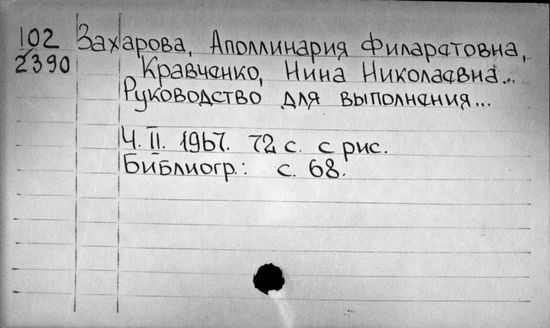 102 Захарова, Аполлинария Филаратовна,
2390 Кравченко, Нина Николаевна...
Руководство для выполнения...
Ч. II. 1967. 72 с. с рис.
Библиогр.: с. 68.